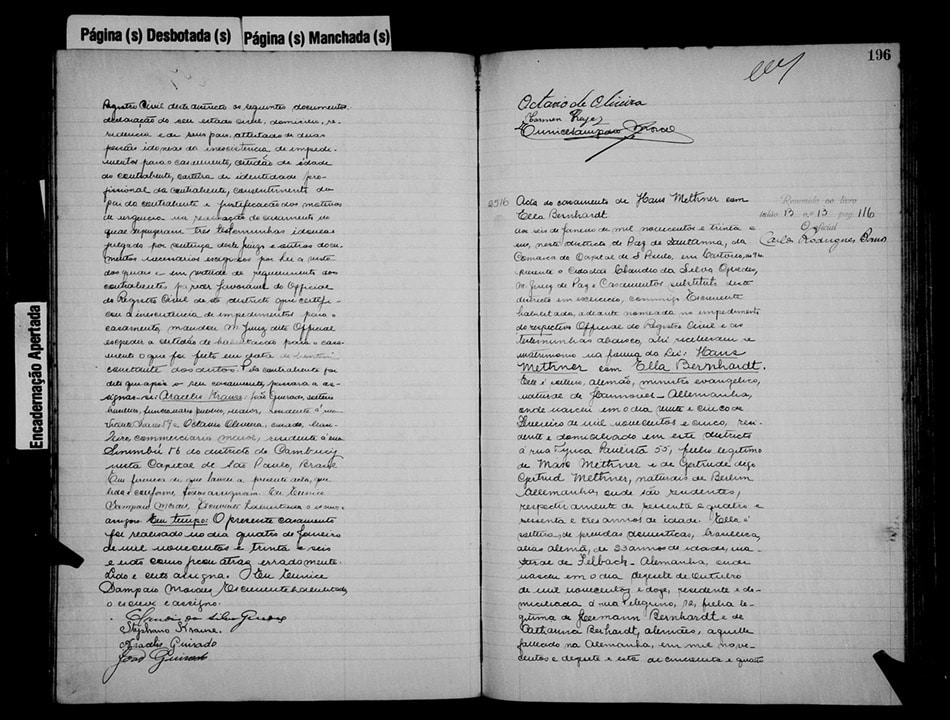 Página (s) Desbotada (s)
Página (s) Manchada (s)
Encadernação Apertada
Registro Civil deste districto os seguintes documentos:
declaração do seu estado civil, domicilio, re-
sidencia e de seus pais, attestados de duas
pessôas idoneas da inexistencia de impedi-
mentos para o casamento, certidão de idade
do contrahente, carteira de identidade pro-
fissional da contrahente, consentimento do
pai do contrahente e justificação dos motivos
de urgencia na realisação do casamento no
qual depuzeram tres testemunhas idoneas
julgado por sentença deste Juizo e outros docu-
mentos necessarios exigidos por Lei a vista
dos quais e em virtude de requerimento dos
contrahentes parecer favoravel do Official
do Registro Civil deste districto que certifi-
cou a inexistencia de impedimentos para o
casamento, mandou M. Juiz dito Official
expedir a certidão de habilitação para o casa-
mento o que foi feito em data de
constante dos autos. Pela contrahente foi
dito que após o seu casamento, passará a as-
signar-se: Aracelis Krause. João Guirado, solteiro
brasileiro, funccionario publico, maior, residente á rua
e Octavio Oliveira, casado, brasi-
leiro, commerciario maior, residente á rua
Sinimbú 56 do districto do Cambucy
nesta Capital de São Paulo, Brasil
Em firmeza do que lavrei a presente acta, que
lida e conforme todos assignam. Eu Eunice
Sampaio Moraes, Escrevente habilitada o escrevi e
assigno. Em tempo: O presente casamento
foi realisado no dia quatro de Janeiro
de mil novecentos e trinta e seis
e não como ficou atraz erradamente.
Lido e certo assigna. Eu Eunice
Sampaio Moraes, Escrevente habilitada,
o escrevi e assigno.
Stephano Krause
Aracelis Guirado
João Guirado
196
Octavio de Oliveira
Carmen
Eunice Sampaio Moraes
2516
Acta do casamento de Hans Methner com
Ella Bernhardt
Removido ao livro
13 nº 13 pag. 116
O official
Carlos Rodrigues
aos seis de Janeiro de mil novecentos e trinta e
seis, neste districto de Paz de Sant'Anna, da
Comarca da Capital de S. Paulo, em Cartorio,
presente o Cidadão Claudio da Silva
M. Juiz de Paz e Casamentos, substituto deste
districto em exercicio, commigo Escrevente
habilitada, adiante nomeada no impedimento
do respectivo Official do Registro Civil e as
testemunhas abaixo, ahi receberam-se em
matrimonio na forma da Lei: Hans
Methner com Ella Bernhardt.
Elle é solteiro, alemão, ministro evangelico,
natural de Hannover - Allemanha,
onde nasceu em o dia vinte e cinco de
Fevereiro de mil novecentos e cinco, resi-
dente e domiciliado em este districto
á rua Paulista 55, filho legitimo
de Max Methner e de Gertrude digo
Gertrud Methner, naturais de Berlim
Allemanha, onde são residentes,
respectivamente de sessenta e quatro e
sessenta e tres annos de idade. Ella é
solteira, de prendas domesticas, brasileira,
alias alemã, de 23 annos de idade, na-
tural de Felbach - Alemanha, onde
nasceu em o dia dezesete de Outubro
de mil novecentos e doze, residente e do-
miciliada á rua Pelegrino, 12, filha le-
gitima de Hermann Bernhardt e de
Catharina Berhardt, alemães, aquelle
fallecido na Alemanha, em mil nove-
centos e dezesete e esta de cincoenta e quatro